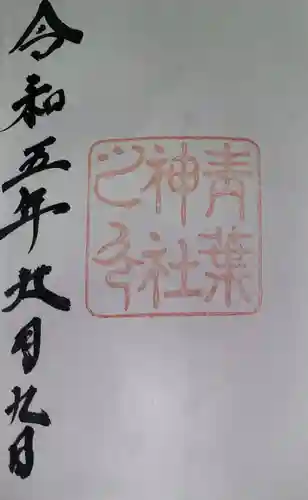 令和五年廿月九日
青葉
神社
之印